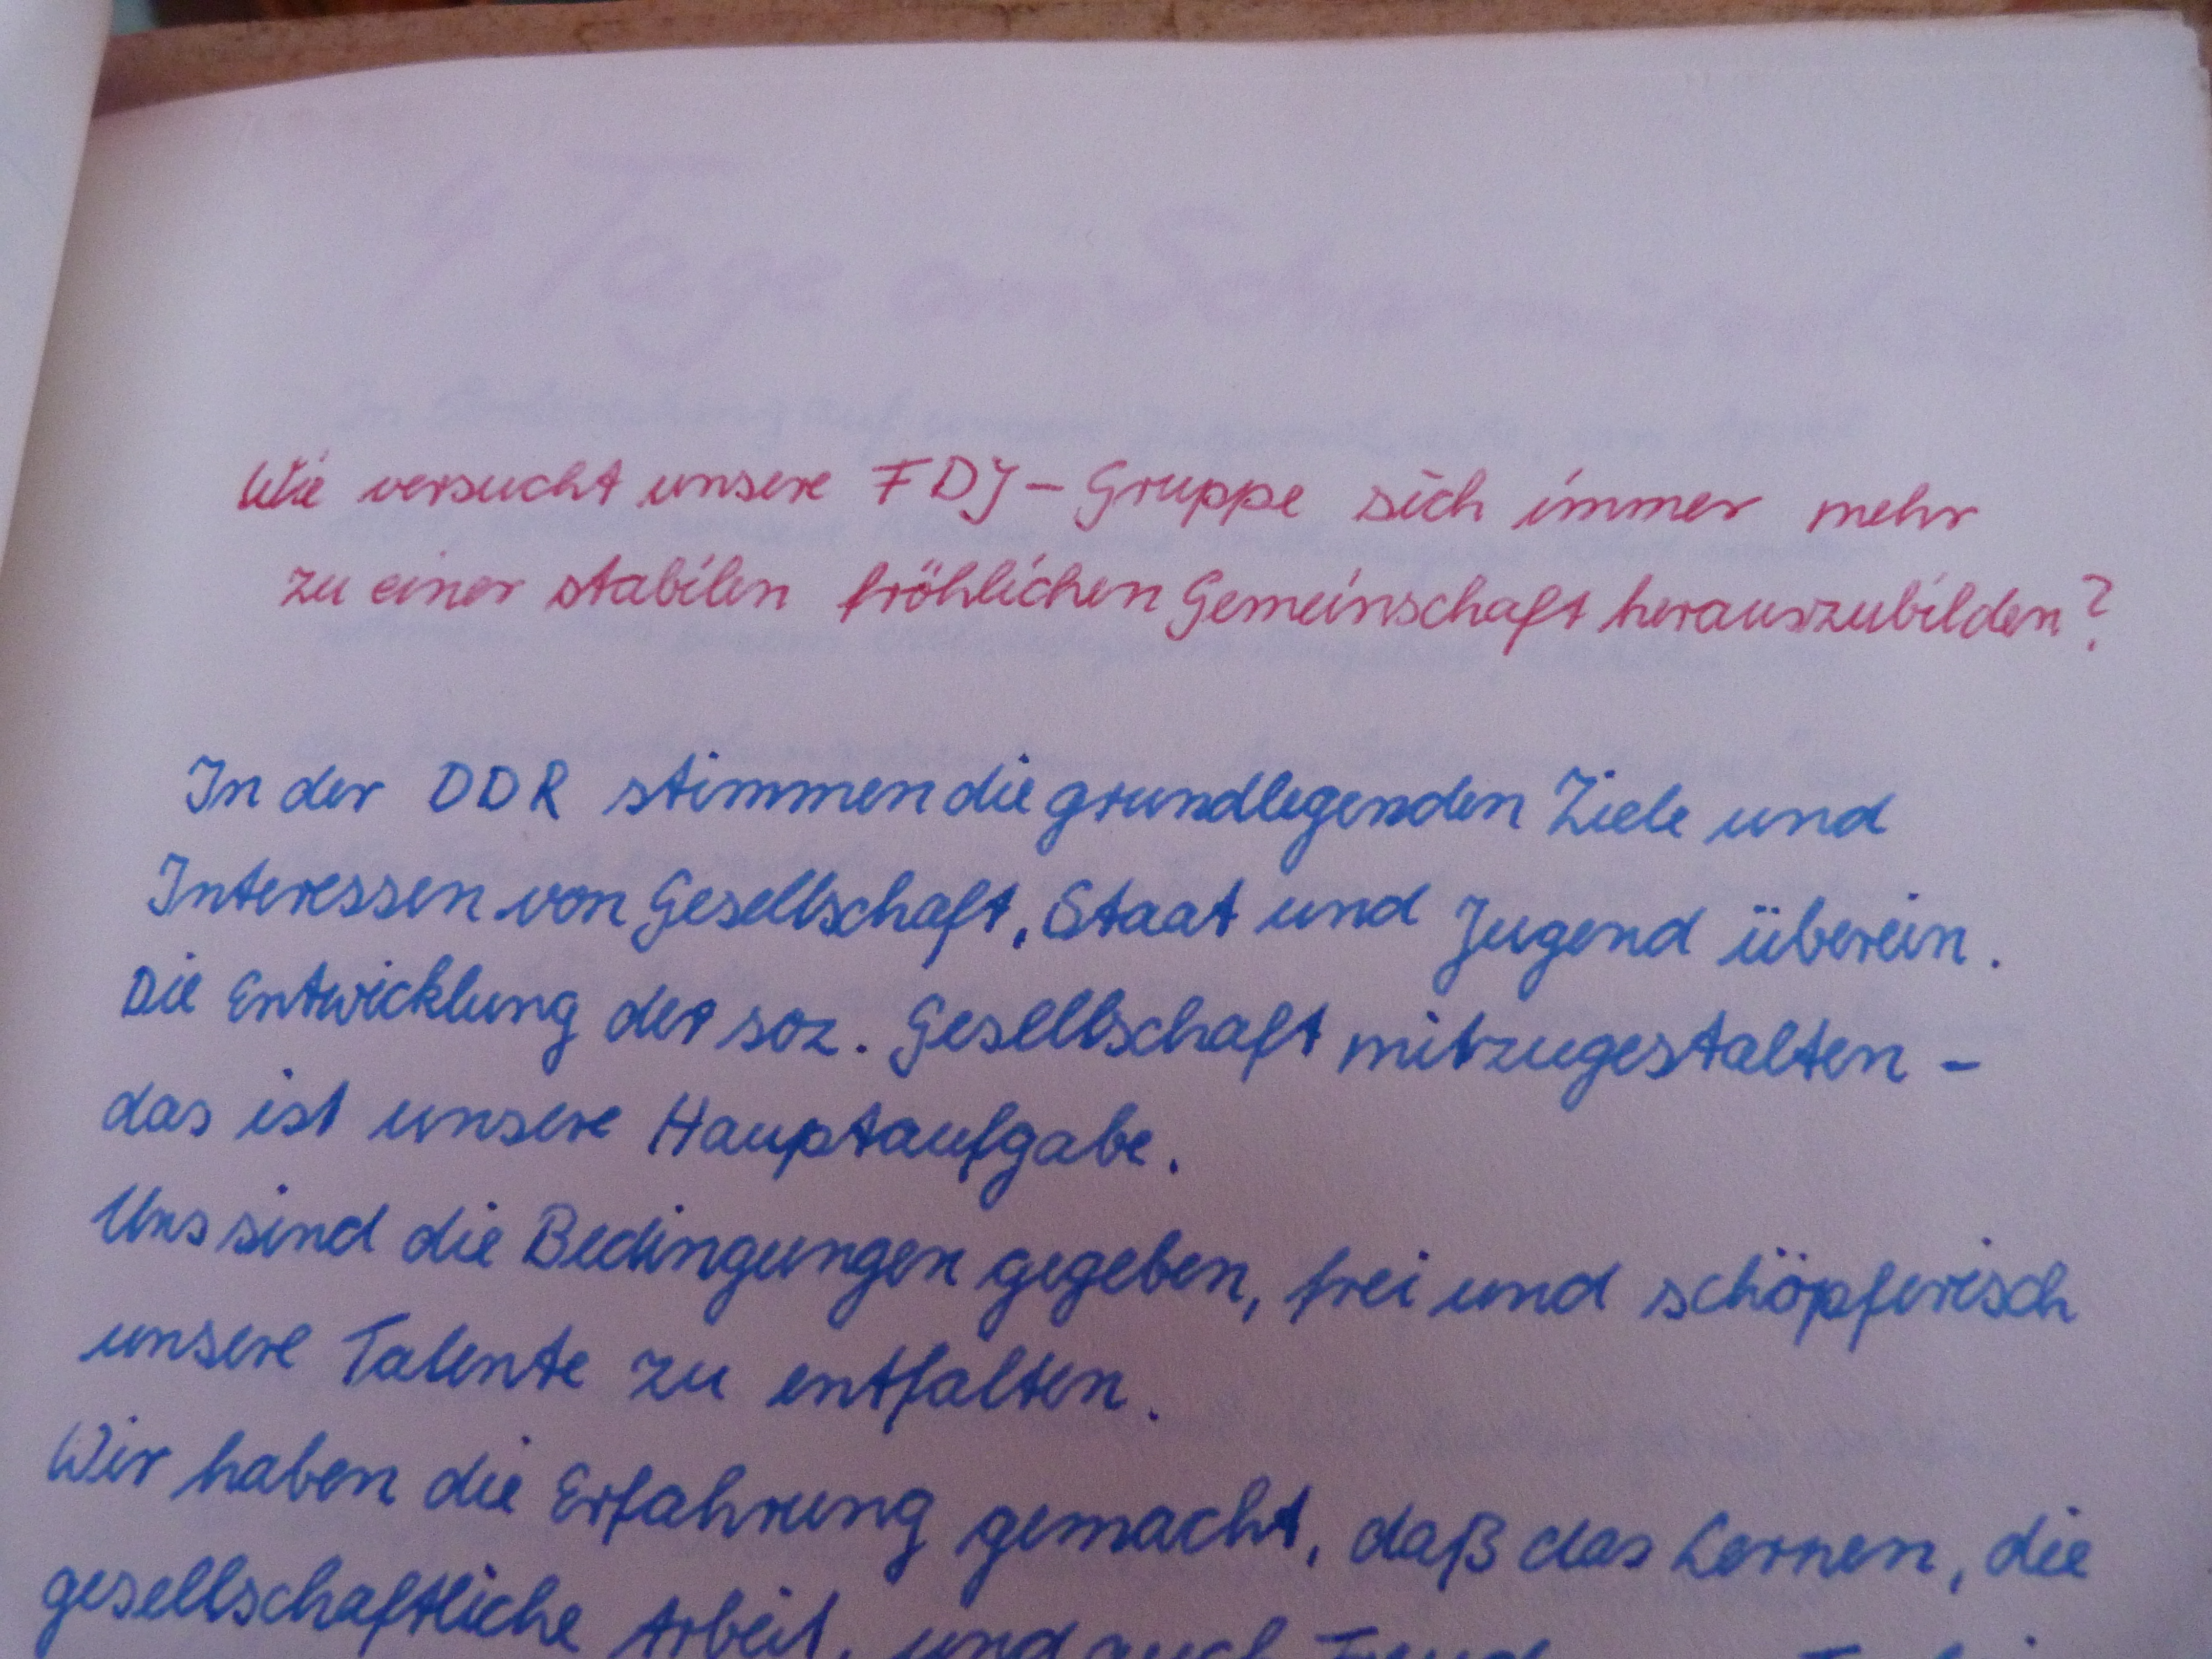 Wie versucht unsere FDJ-Gruppe sich immer mehr
zu einer stabilen fröhlichen Gemeinschaft herauszubilden?
In der DDR stimmen die grundlegenden Ziele und
Interessen von Gesellschaft, Staat und Jugend überein.
Die Entwicklung der soz. Gesellschaft mitzugestalten -
das ist unsere Hauptaufgabe.
Uns sind die Bedingungen gegeben, frei und schöpferisch
unsere Talente zu entfalten.
Wir haben die Erfahrung gemacht, daß das Lernen, die
gesellschaftliche Arbeit, und auch